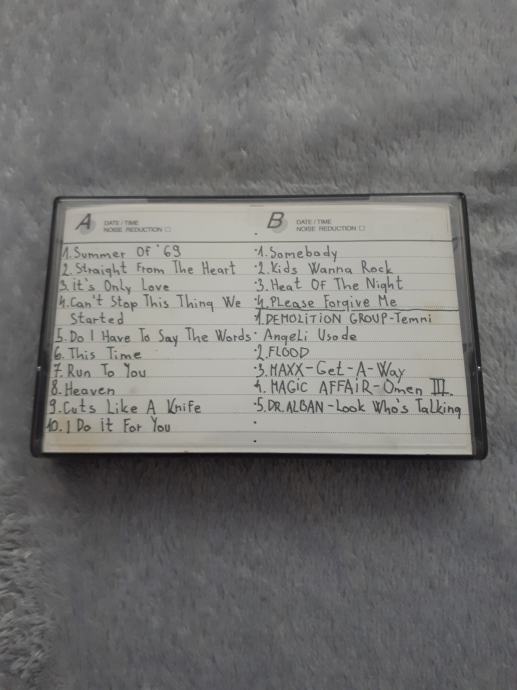 A DATE / TIME
NOISE REDUCTION
1. Summer Of '69
2. Straight From The Heart
3. It's Only Love
4. Can't Stop This Thing We
Started
5. Do I Have To Say The Words
6. This Time
7. Run To You
8. Heaven
9. Cuts Like A Knife
10. I Do It For You
B DATE / TIME
NOISE REDUCTION
1. Somebody
2. Kids Wanna Rock
3. Heat Of The Night
4. Please Forgive Me
1. DEMOLITION GROUP-Temni
Angeli Usode
2. FLOOD
3. MAXX-Get-A-Way
4. MAGIC AFFAIR-Omen III.
5. DR. ALBAN-Look Who's Talking